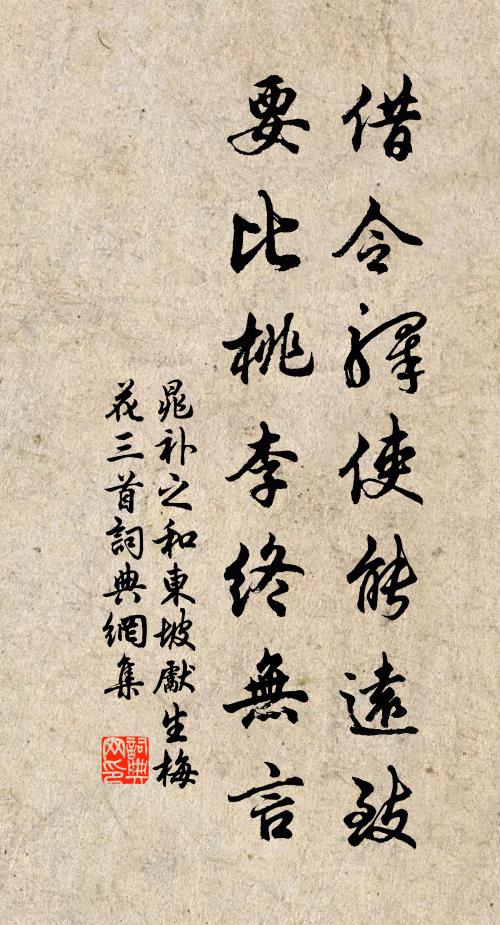 借令驛使能遠致
要比桃李終無言
晁补之和東坡獻生梅
花三首詞典網集
詞典
网印